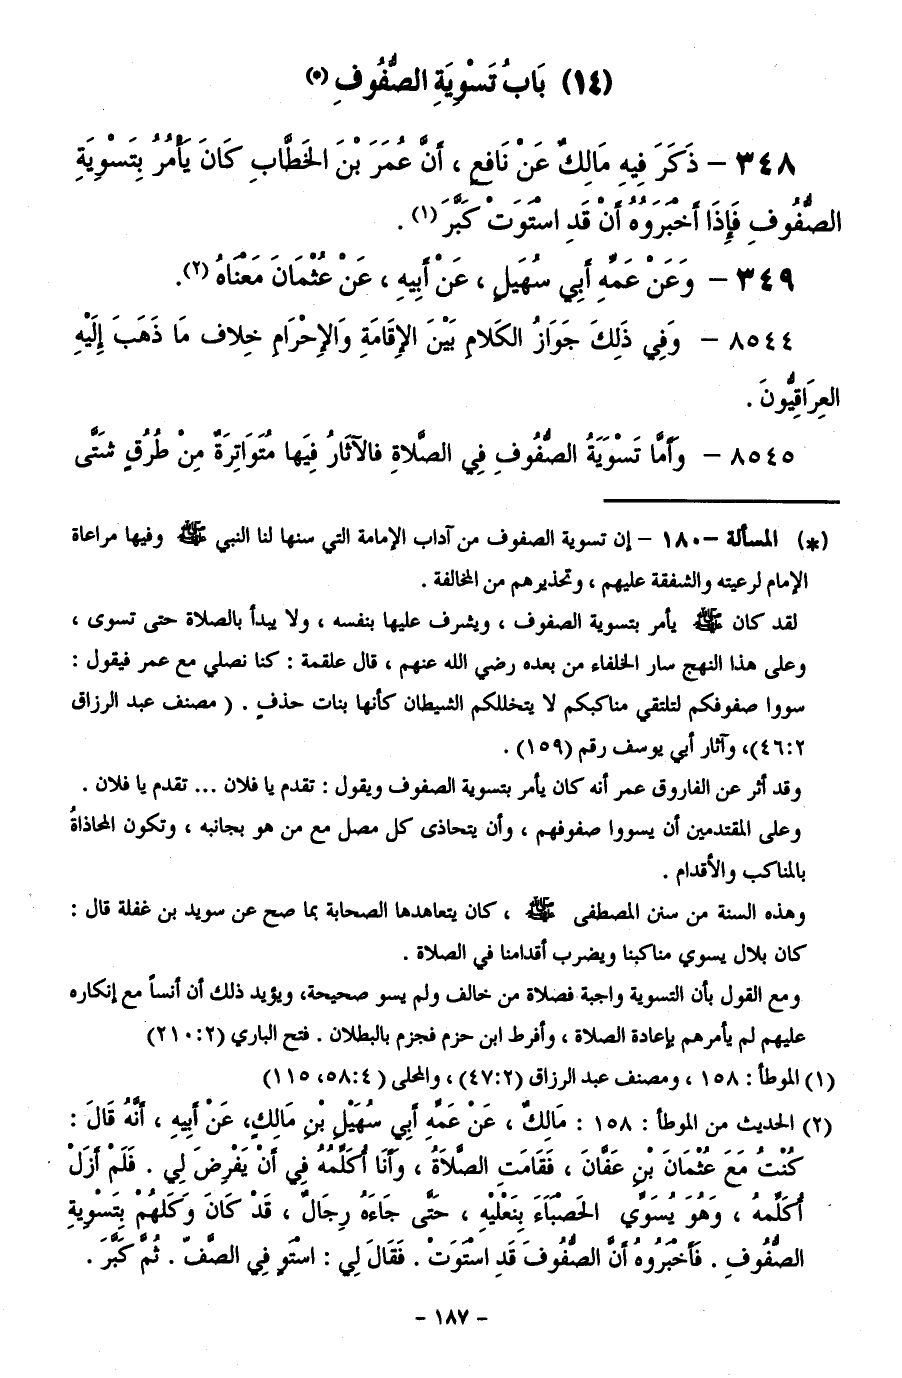 (١٤) بَابُ تَسْوِيَةِ الصُّفُوفِ (*)
٣٤٨ – ذَكَرَ فِيهِ مَالِكٌ عَنْ نَافِعٍ ، أَنَّ عُمَرَ بْنَ الخَطَّابِ كَانَ يَأْمُرُ بِتَسْوِيَةِ
الصُّفُوفِ فَإِذَا أَخْبَرُوهُ أَنْ قَدِ اسْتَوَتْ كَبَّرَ (١) .
٣٤٩ – وَعَنْ عَمِّهِ أَبِي سُهَيلٍ ، عَنْ أَبِيهِ ، عَنْ عُثْمَانَ مَعْنَاهُ (٢).
٨٥٤٤ – وَفِي ذَلِكَ جَوَازُ الكَلَامِ بَيْنَ الإِقَامَةِ وَالإِحْرَامِ خِلاف مَا ذَهَبَ إِلَيْهِ
العِرَاقِيُّونَ .
٨٥٤٥ – وَأَمَّا تَسْوَيَةُ الصُّفُوفِ فِي الصَّلَاةِ فالآثَارُ فِيَها مُتَوَاتِرَةٌ مِنْ طُرُقٍ شَتَّى
(*) المسألة –١٨٠ – إن تسوية الصفوف من آداب الإمامة التي سنها لنا النبي ﷺ وفيها مراعاة
الإمام لرعيته والشفقة عليهم ، وتحذيرهم من المخالفة .
لقد كان ﷺ يأمر بتسوية الصفوف ، ويشرف عليها بنفسه ، ولا يبدأ بالصلاة حتى تسوى ،
وعلى هذا النهج سار الخلفاء من بعده رضي الله عنهم ، قال علقمة : كنا نصلي مع عمر فيقول :
سووا صفوفكم لتلتقي مناكبكم لا يتخللكم الشيطان كأنها بنات حذفٍ . ( مصنف عبد الرزاق
٤٦:٢)، وآثار أبي يوسف رقم (١٥٩) .
وقد أثر عن الفاروق عمر أنه كان يأمر بتسوية الصفوف ويقول : تقدم يا فلان ... تقدم يا فلان .
وعلى المقتدمين أن يسووا صفوفهم ، وأن يتحاذى كل مصل مع من هو بجانبه ، وتكون المحاذاةُ
بالمناكب والأقدام .
وهذه السنة من سنن المصطفى ﷺ ، كان يتعاهدها الصحابة بما صح عن سويد بن غفلة قال :
كان بلال يسوي مناكبنا ويضرب أقدامنا في الصلاة .
ومع القول بأن التسوية واجبة فصلاة من خالف ولم يسو صحيحة، ويؤيد ذلك أن أنساً مع إنكاره
عليهم لم يأمرهم بإعادة الصلاة ، وأفرط ابن حزم فجزم بالبطلان . فتح الباري (٢١٠:٢)
(١) الموطأ : ١٥٨ ، ومصنف عبد الرزاق (٤٧:٢) ، والمحلى ( ٥٨:٤، ١١٥)
(٢) الحديث من الموطأ : ١٥٨ : مَالِكٌ ، عَنْ عَمِّهِ أَبِي سُهَيْلِ بْنِ مَالِكٍ، عَنْ أَبِيهِ ، أَنَّهُ قَالَ :
كُنْتُ مَعَ عُثْمَانَ بْنِ عَفَّانَ ، فَقَامَتِ الصَّلَاةُ ، وَأَنَا أُكَلِّمُهُ فِي أَنْ يَفْرِضَ لِي . فَلَمْ أَزَلْ
أُكَلِّمُهُ ، وَهُوَ يُسَوِّي الحَصْبَاءَ بِنَعْلَيْهِ ، حَتَّى جَاءَهُ رِجَالٌ ، قَدْ كَانَ وَكَلَهُمْ بِتَسْوِيَةِ
الصُّفُوفِ . فَأَخْبَرُوهُ أَنَّ الصُّفُوفَ قَدِ اسْتَوَتْ . فَقَالَ لِي : اسْتَوِ فِي الصَّفِّ . ثُمَّ كَبَّرَ .
- ١٨٧ -